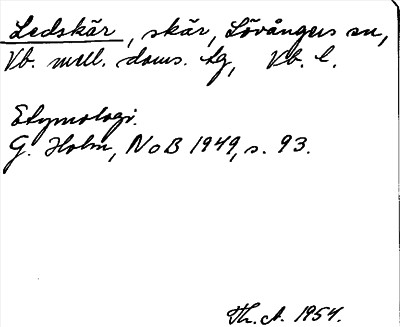 Ledskär, skär, Lövångers sn,
Vb. mell. doms. tg, Vb. l.
Etymologi.
G. Holm, NoB 1949, s. 93.
Th. A. 1954.